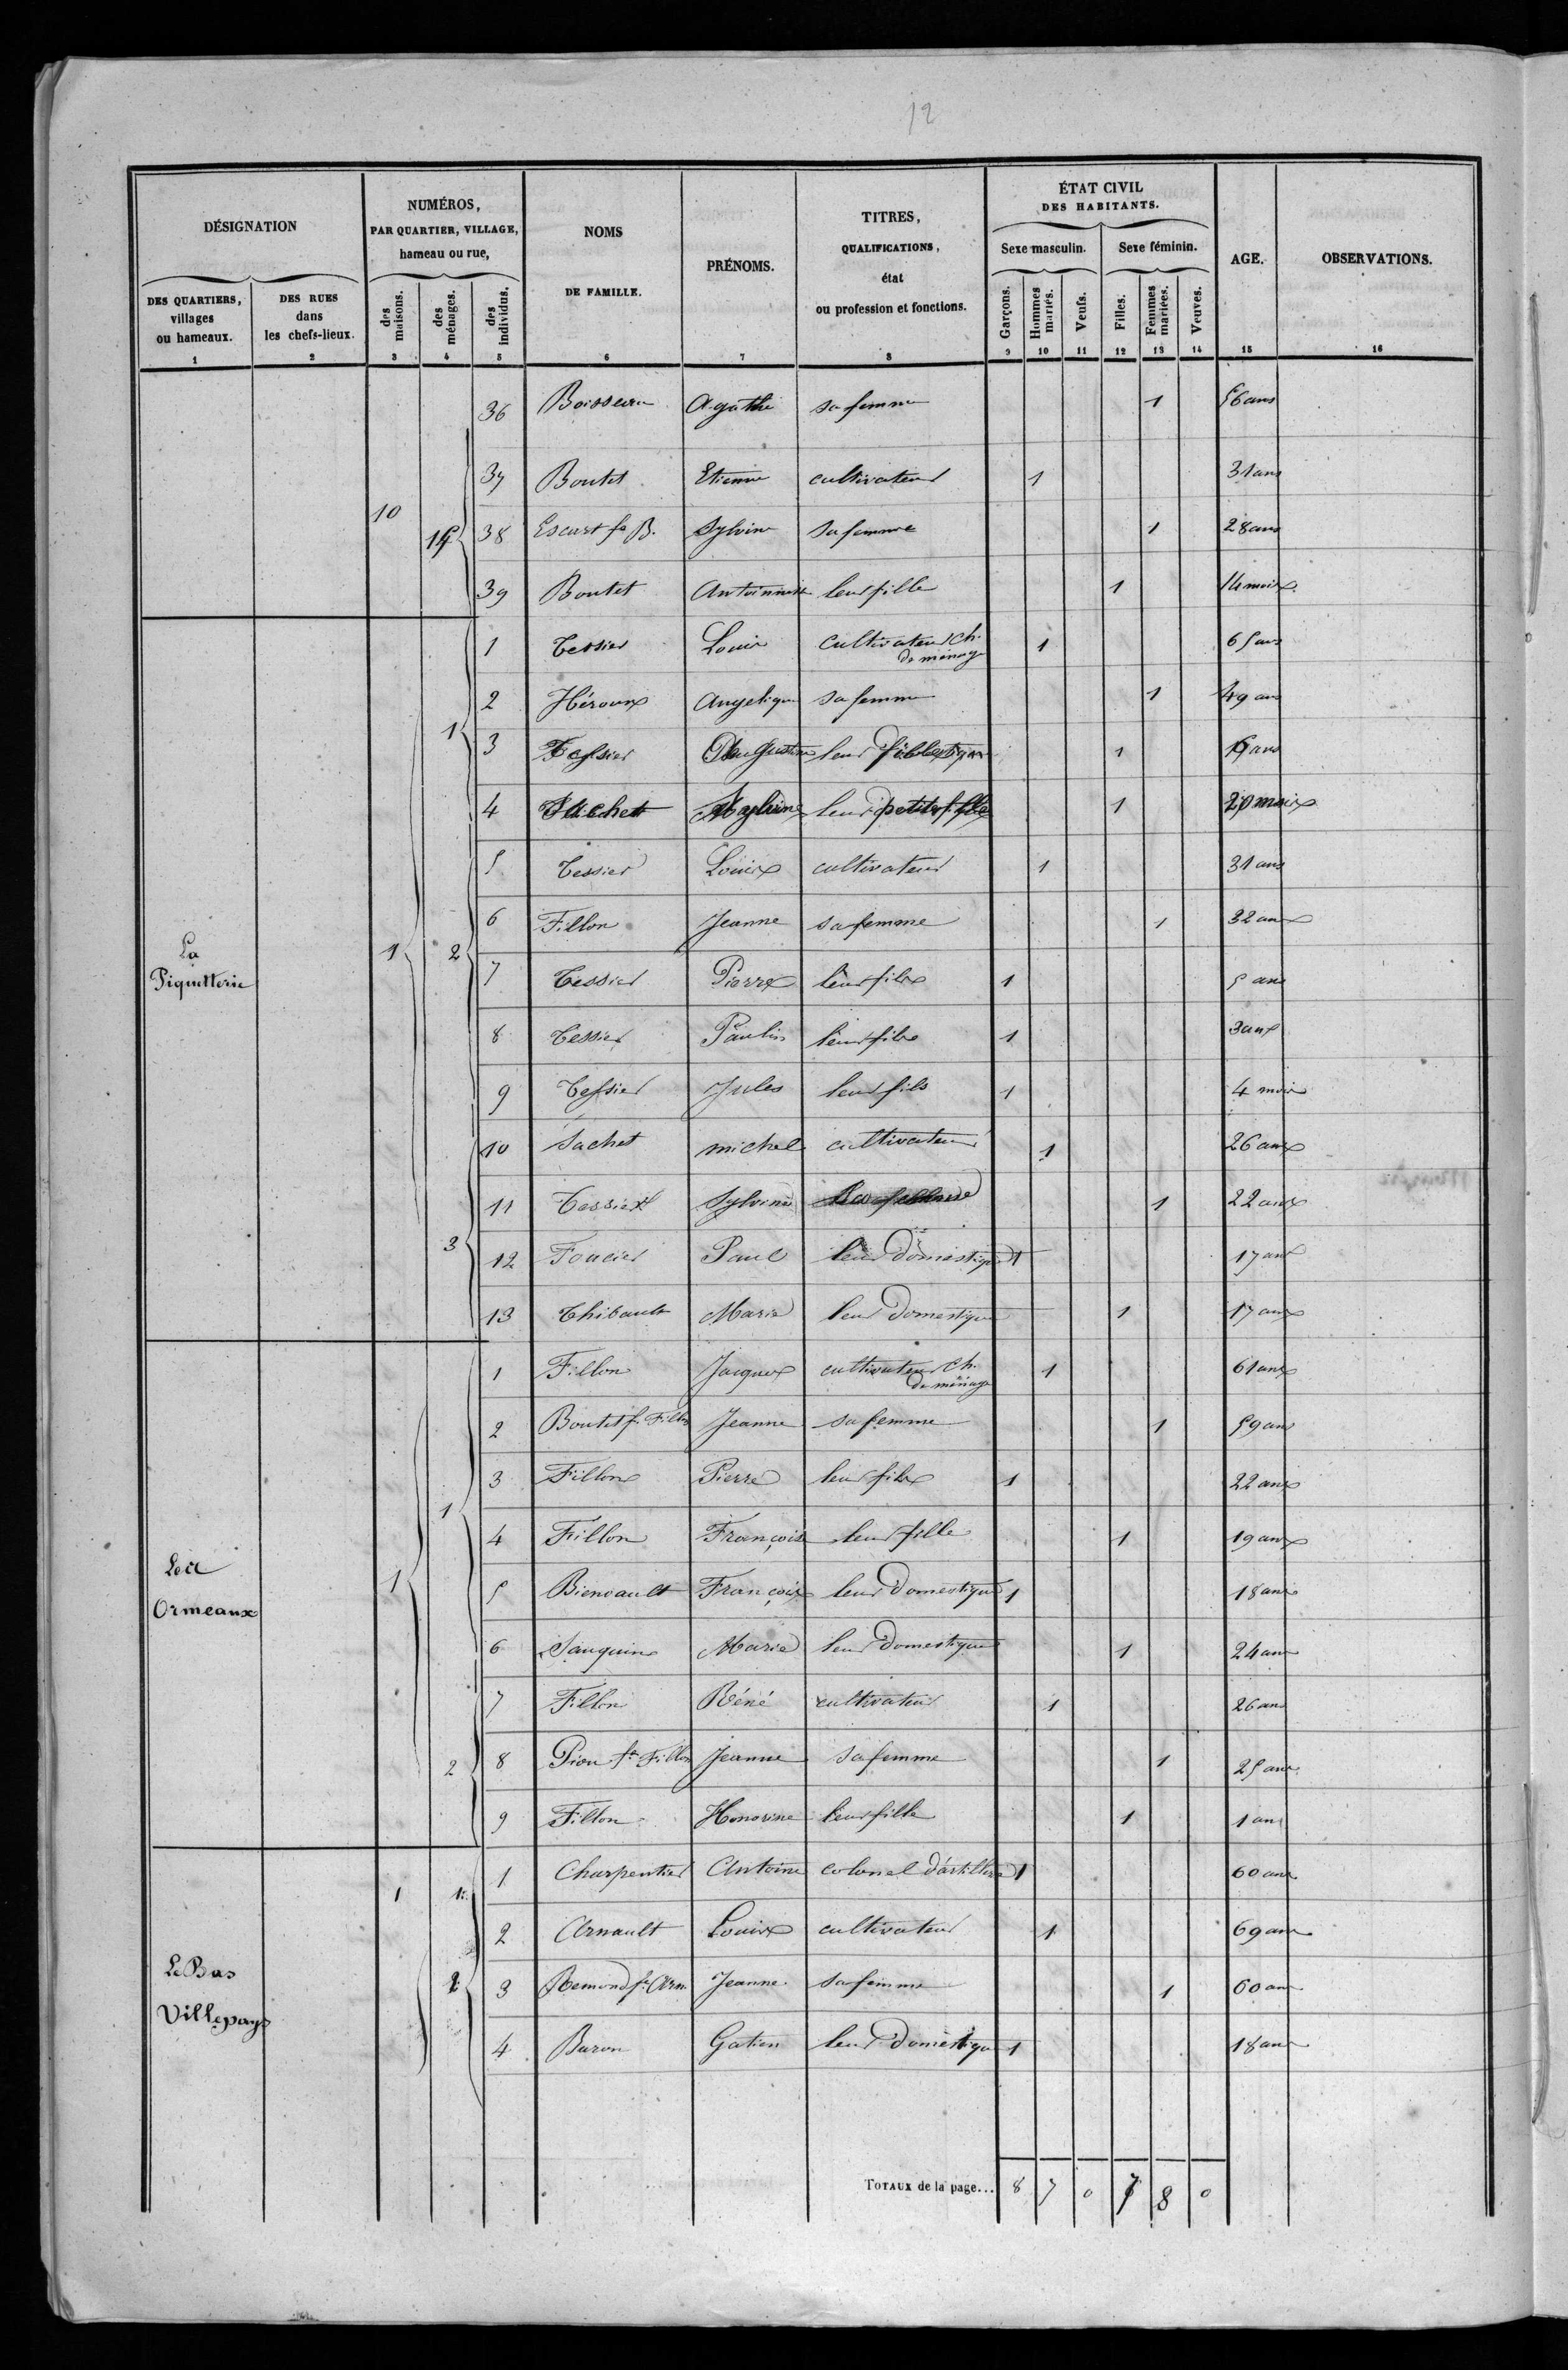 12
DÉSIGNATION
DES QUARTIERS, villages ou hameaux.
DES RUES dans les chefs-lieux.
NUMÉROS, PAR QUARTIER, VILLAGE, hameau ou rue,
des maisons.
des ménages.
des individus.
NOMS DE FAMILLE.
PRÉNOMS.
TITRES, QUALIFICATIONS, état ou profession et fonctions.
ÉTAT CIVIL DES HABITANTS.
Sexe masculin.
Sexe féminin.
Garçons.
Hommes mariés.
Veufs.
Filles.
Femmes mariées.
Veuves.
AGE.
OBSERVATIONS.
1 2 3 4 5 6 7 8 9 10 11 12 13 14 15 16
36 Boisseau Agathe sa femme 1 56 ans
37 Boutet Etienne cultivateur 1 31 ans
10 38 Escart fe B. Sylvine sa femme 1 28 ans
39 Boutet Antoinnette leur fille 1 14 mois
1 Tessier Louis cultivateur ch. de ménage 1 65 ans
2 Héroux Angelique sa femme 1 49 ans
1 3 Tessier Augustine leur 1 ans
4 Sachet leur petite fille 1 mois
5 Tessier Louis cultivateur 1 31 ans
6 Fillon Jeanne sa femme 1 32 ans
La Piquetterie 1 2
7 Tessier Pierre leur fils 1 5 ans
8 Tessier Paulin leur fils 1 3 ans
9 Tessier Jules leur fils 1 4 mois
10 Sachet michel cultivateur 1 26 ans
11 Tessier Sylvine 1 22 ans
3 12 Foucier Paul leur Domestique 1 17 ans
13 Thibault Marie leur Domestique 1 17 ans
1 Fillon Jacques cultivateur ch. de ménage 1 61 ans
2 Boutet f. Fillon Jeanne sa femme 1 59 ans
3 Fillon Pierre leur fils 1 22 ans
1 4 Fillon Françoise leur fille 1 19 ans
Les Ormeaux 1
5 Bienvault François leur Domestique 1 18 ans
6 Sanguin Marie leur Domestique 1 24 ans
7 Fillon Réné cultivateur 1 26 ans
2 8 Pion fe Fillon Jeanne sa femme 1 25 ans
9 Fillon Honorine leur fille 1 1 an
1 1 1 Charpentier Antoine colonel d'artillerie 1 60 ans
2 Arnault Louis cultivateur 1 69 ans
Le Bas Villepays
2 3 Remond fe Arn. Jeanne sa femme 1 60 ans
4 Baron Gatien leur Domestique 1 18 ans
TOTAUX de la page... 8 7 0 7 8 0